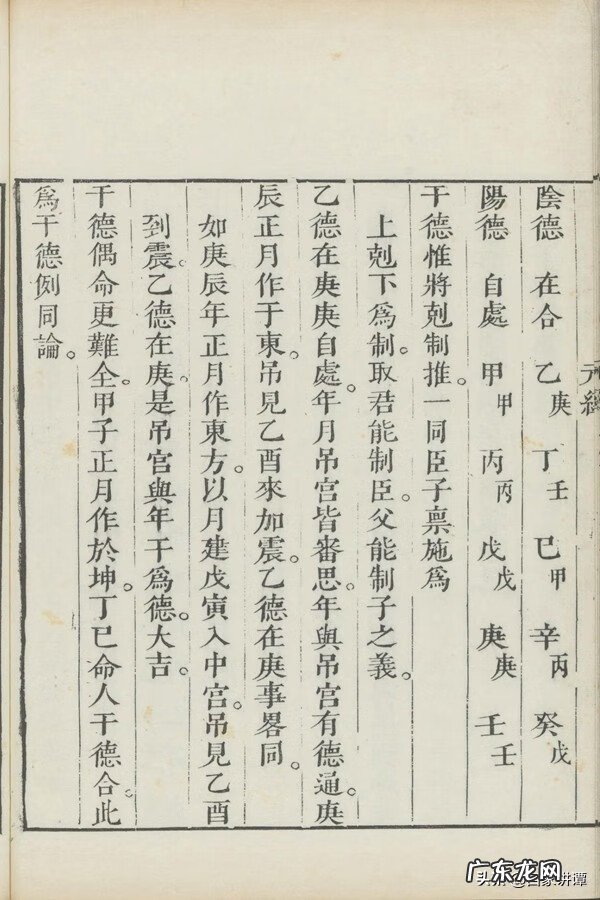 元經
陰德 在合 乙庚 丁壬 巳甲 辛丙 癸戊
陽德 自處 甲甲 丙丙 戊戊 庚庚 壬壬
干德惟將剋制推。一同臣子禀施爲
上剋下爲制。取君能制臣。父能制子之義。
乙德在庚庚自處。年月吊宮皆審思。年與吊宮有德通。庚
辰正月作于東。吊見乙酉來加震。乙德在庚事畧同。
如庚辰年正月作東方。以月建戊寅入中宮。吊見乙酉
到震。乙德在庚。是吊宮與年干爲德。大吉。
干德偶命更難全。甲子正月作於坤。丁巳命人干德合。此
爲干德例同論。
广东龙网
头条@百家讲谭